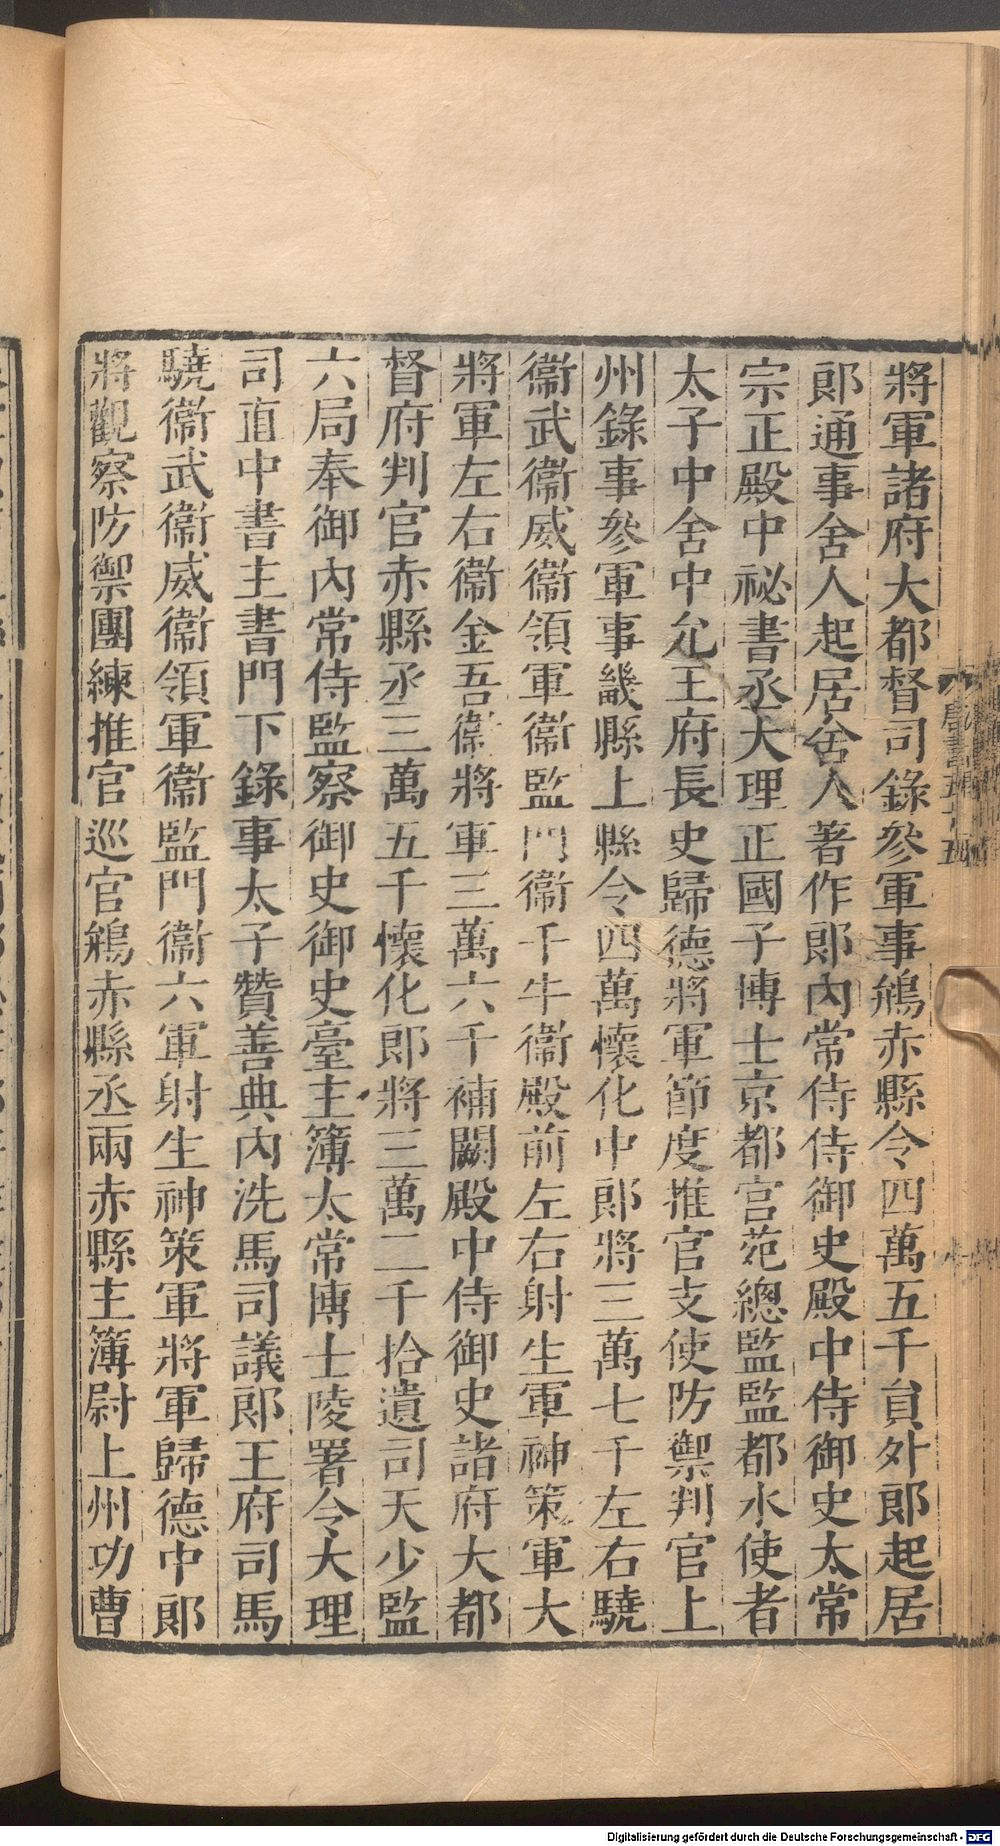 將軍諸府大都督司錄參軍事鵷赤縣令四萬五千貟外郞起居
郞通事舍人起居舍人著作郞內常侍侍御史殿中侍御史太常
宗正殿中祕書丞大理正國子博士京都宮苑總監監都水使者
太子中舍中允王府長史歸德將軍節度推官支使防禦判官上
州錄事參軍事畿縣上縣令四萬懷化中郞將三萬七千左右驍
衞武衞威衞領軍衞監門衞千牛衞殿前左右射生軍神策軍大
將軍左右衞金吾衞將軍三萬六千補闕殿中侍御史諸府大都
督府判官赤縣丞三萬五千懷化郞將三萬二千拾遺司天少監
六局奉御內常侍監察御史御史臺主簿太常博士陵署令大理
司直中書主書門下錄事太子贊善典內洗馬司議郞王府司馬
驍衞武衞威衞領軍衞監門衞六軍射生神策軍將軍歸德中郞
將觀察防禦團練推官巡官鵷赤縣丞兩赤縣主簿尉上州功曹
唐書五十五
Digitalisierung gefördert durch die Deutsche Forschungsgemeinschaft - DFG